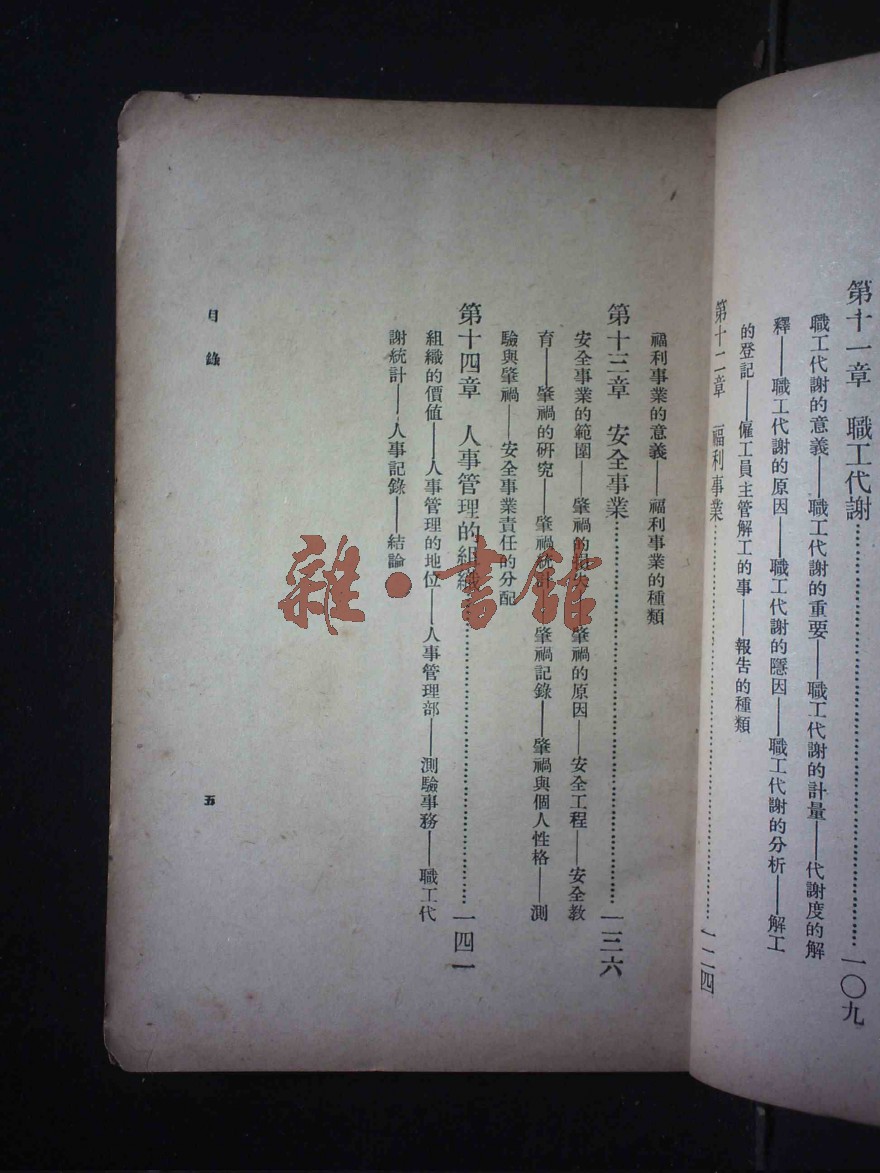 第十一章　職工代謝……一〇九
職工代謝的意義——職工代謝的重要——職工代謝的計量——代謝度的解
釋——職工代謝的原因——職工代謝的隱因——職工代謝的分析——解工
的登記——僱工員主管解工的事——報告的種類
第十二章　福利事業……一二四
福利事業的意義——福利事業的種類
第十三章　安全事業……一三六
安全事業的範圍——肇禍的損失——肇禍的原因——安全工程——安全教
育——肇禍的研究——肇禍統計——肇禍記錄——肇禍與個人性格——測
驗與肇禍——安全事業責任的分配
第十四章　人事管理的組織……一四一
組織的價値——人事管理的地位——人事管理部——測驗事務——職工代
謝統計——人事記錄——結論
目錄
五
雜·書館